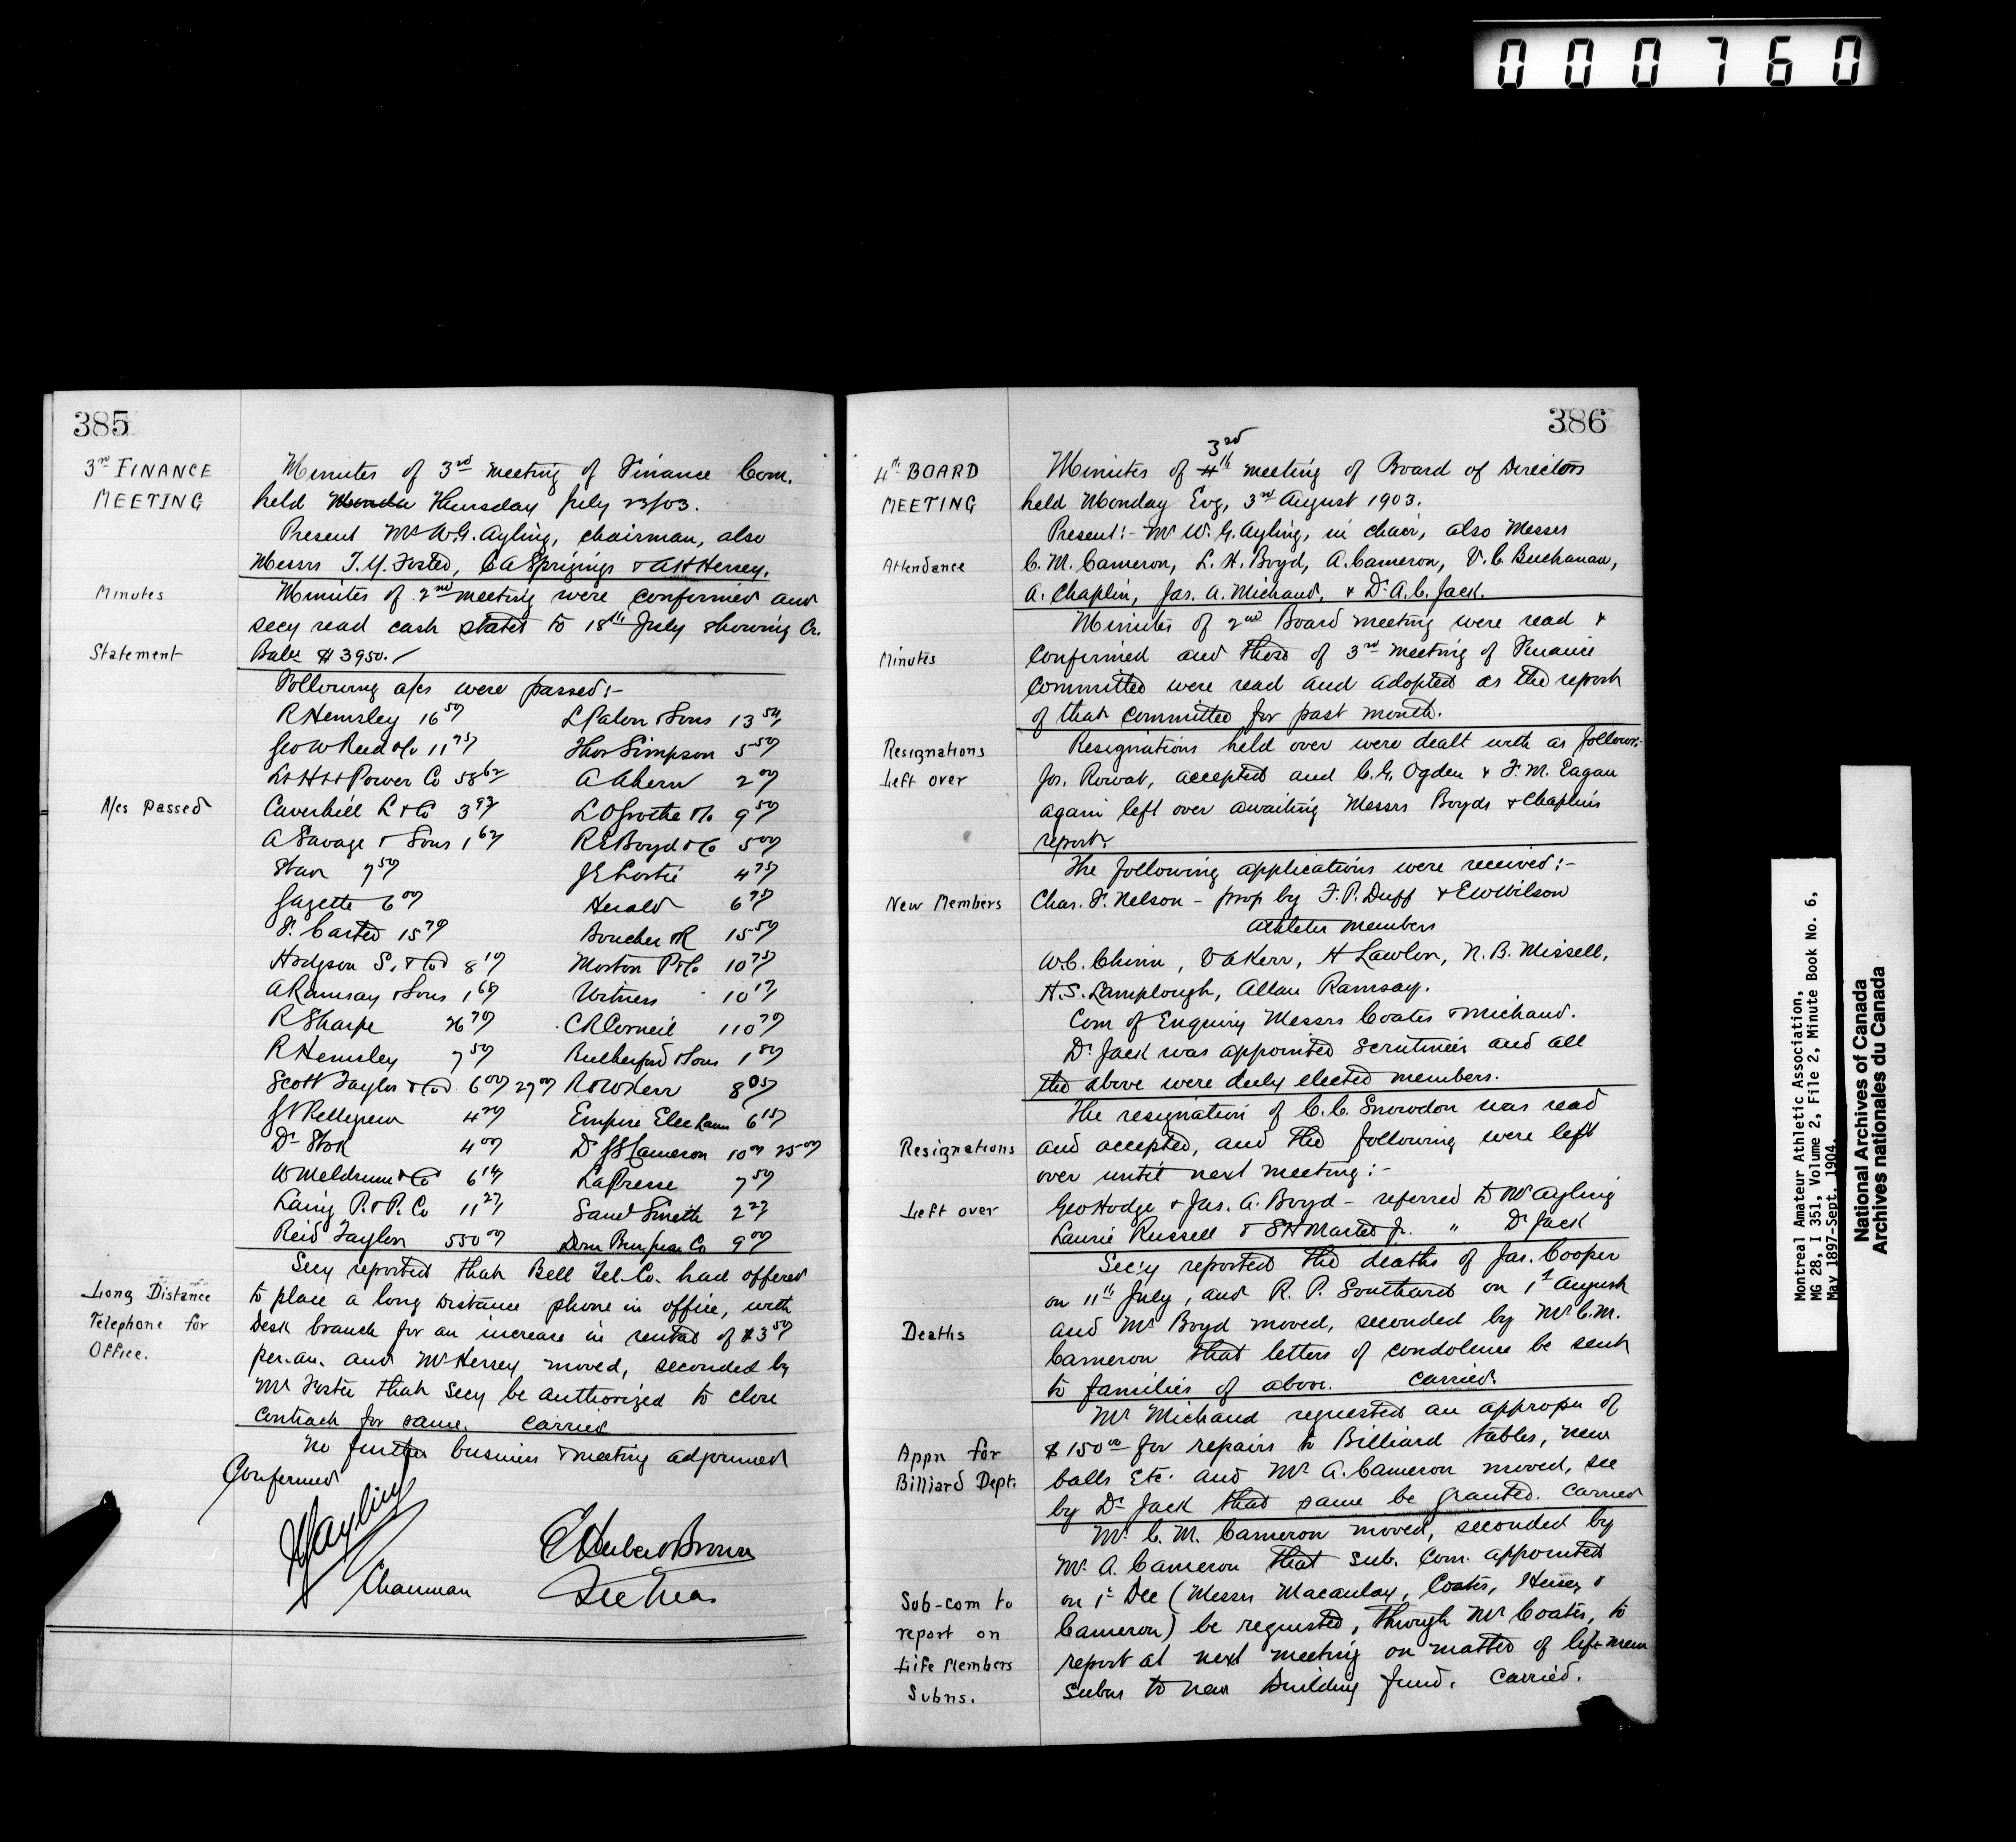 000760
385
3rd FINANCE
MEETING
Minutes of 3rd meeting of Finance Com.
held Monda Thursday July 23/03.
Present Mr W.G. Ayling, chairman, also
Messrs T.Y. Foster, C A Sprigings & A H Hersey.
Minutes
Minutes of 2nd meeting were confirmed and
secy read cash statet to 18th July showing Cr.
Statement
Balce $3950.
Following a/cs were passed:-
A/cs passed
R Hemsley 16 50 L Paton & Sons 13 54
Geo W Reed & Co 11 75 Thos Simpson 5 50
L H & Power Co 58 62 A Ahern 2 00
Caverhill L & Co 3 93 L O Grothe & Co 9 50
A Savage & Sons 1 62 R E Boyd & Co 5 00
Star 7 50 J E Lortie 4 75
Gazette 6 00 Herald 6 75
F. Carter 15 70 Boucher & R 15 50
Hodgson S. & Co 8 10 Morton P & Co 10 75
A Ramsay & Sons 1 68 Witness 10 17
R Sharpe 26 70 C R Corneil 110 70
R Hemsley 7 50 Rutherford & Sons 1 80
Scott Taylor & Co 6 00 27 00 R & W Kerr 8 05
4 20 Empire Elec 6 15
Dr 4 00 Dr J S Cameron 10 00 25 00
W Meldrum & Co 6 14 La Presse 7 50
Laing P. & P. Co 11 27 Saml Smith 2 27
Reid Taylor 550 00 Dom Co 9 00
Long Distance
Telephone for
Office.
Secy reported that Bell Tel. Co. had offered
to place a long distance phone in office, with
desk branch for an increase in rental of $3 50
per. an. and Mr Hersey moved, seconded by
Mr Foster that Secy be authorized to close
contract for same. Carried
No further business & meeting adjourned
Confirmed
W G Ayling
Chairman
C Herbert Brown
Sec Treas.
386
4th BOARD
MEETING
3rd
Minutes of 4th meeting of Board of Directors
held Monday Evg, 3rd August 1903.
Present:- Mr W. G. Ayling, in chair, also Messrs
Attendance
C. M. Cameron, L. H. Boyd, A. Cameron, V. C. Buchanan,
A. Chaplin, Jas. A. Michaud, & Dr A. C. Jack.
Minutes of 2nd Board meeting were read &
Minutes
confirmed and those of 3rd meeting of Finance
Committee were read and adopted as the report
of that committee for past month.
Resignations
Left over
Resignations held over were dealt with as follows:-
Jos. Rowat, accepted and C. G. Ogden & F. M. Eagan
again left over awaiting Messrs Boyds & Chaplins
report.
The following applications were received:-
New Members
Chas. F. Nelson - prop by F. P. Duff & E W Wilson
Athletic members
W. C. Chinn, V A Kerr, H Lawlor, N. B. Missell,
H. S. Lamplough, Allan Ramsay.
Com of Enquiry Messrs Coates & Michaud.
Dr Jack was appointed scrutineer and all
the above were duly elected members.
The resignation of C. C. Snowdon was read
Resignations
and accepted, and the following were left
over until next meeting:-
Left over
Geo Hodge & Jas. A. Boyd - referred to Mr Ayling
Laurie Russell & S H Marted Jr. " Dr Jack
Sec'y reported the deaths of Jas. Cooper
on 11th July, and R. P. Southard on 1st August
Deaths
and Mr Boyd moved, seconded by Mr C. M.
Cameron that letters of condolence be sent
to families of above. Carried.
Mr Michaud requested an appropn of
Appn for
Billiard Dept.
$150 00 for repairs to Billiard tables, new
balls Etc. and Mr A. Cameron moved, sec
by Dr Jack that same be granted. Carried
Mr. C. M. Cameron moved, seconded by
Mr. A. Cameron that sub. Com. appointed
Sub-com to
report on
Life Members
Subns.
on 1st Dec (Messrs Macaulay, Coates, Hersey &
Cameron) be requested, through Mr Coates, to
report at next meeting on matter of life mem
subns to new Building fund. Carried.
Montreal Amateur Athletic Association,
MG 28, I 351, Volume 2, File 2, Minute Book No. 6,
May 1897-Sept. 1904.
National Archives of Canada
Archives nationales du Canada